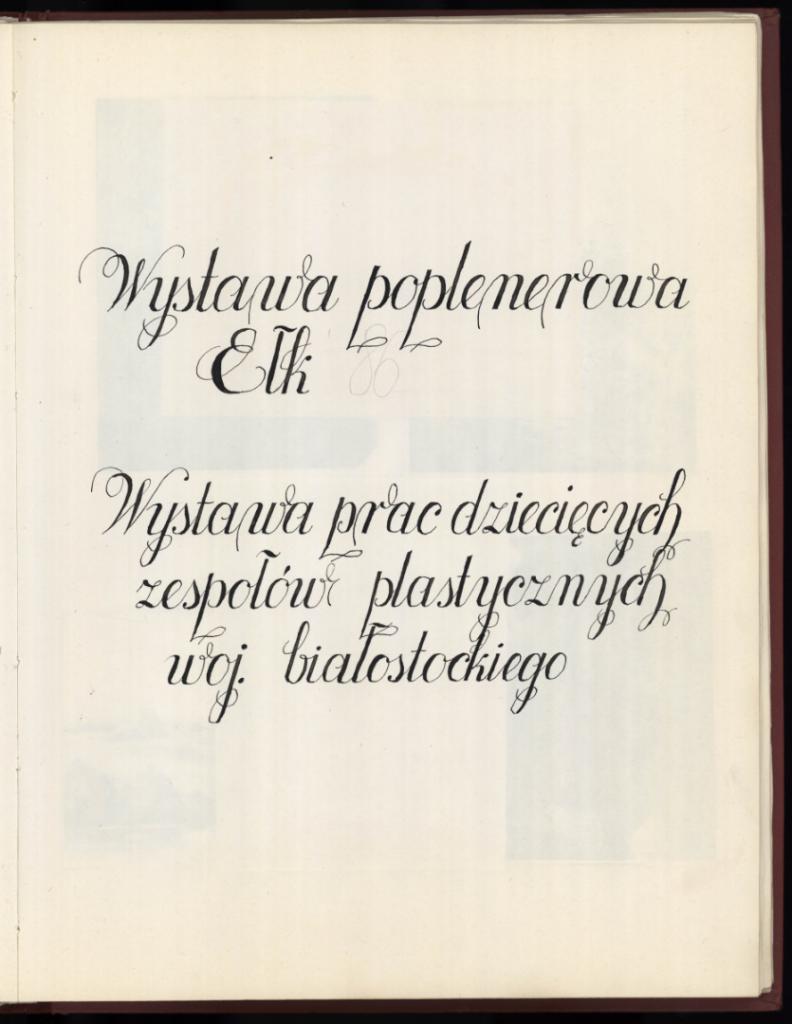 Wystawa poplenerowa
Ełk 86
Wystawa prac dziecięcych
zespołów plastycznych
woj. białostockiego